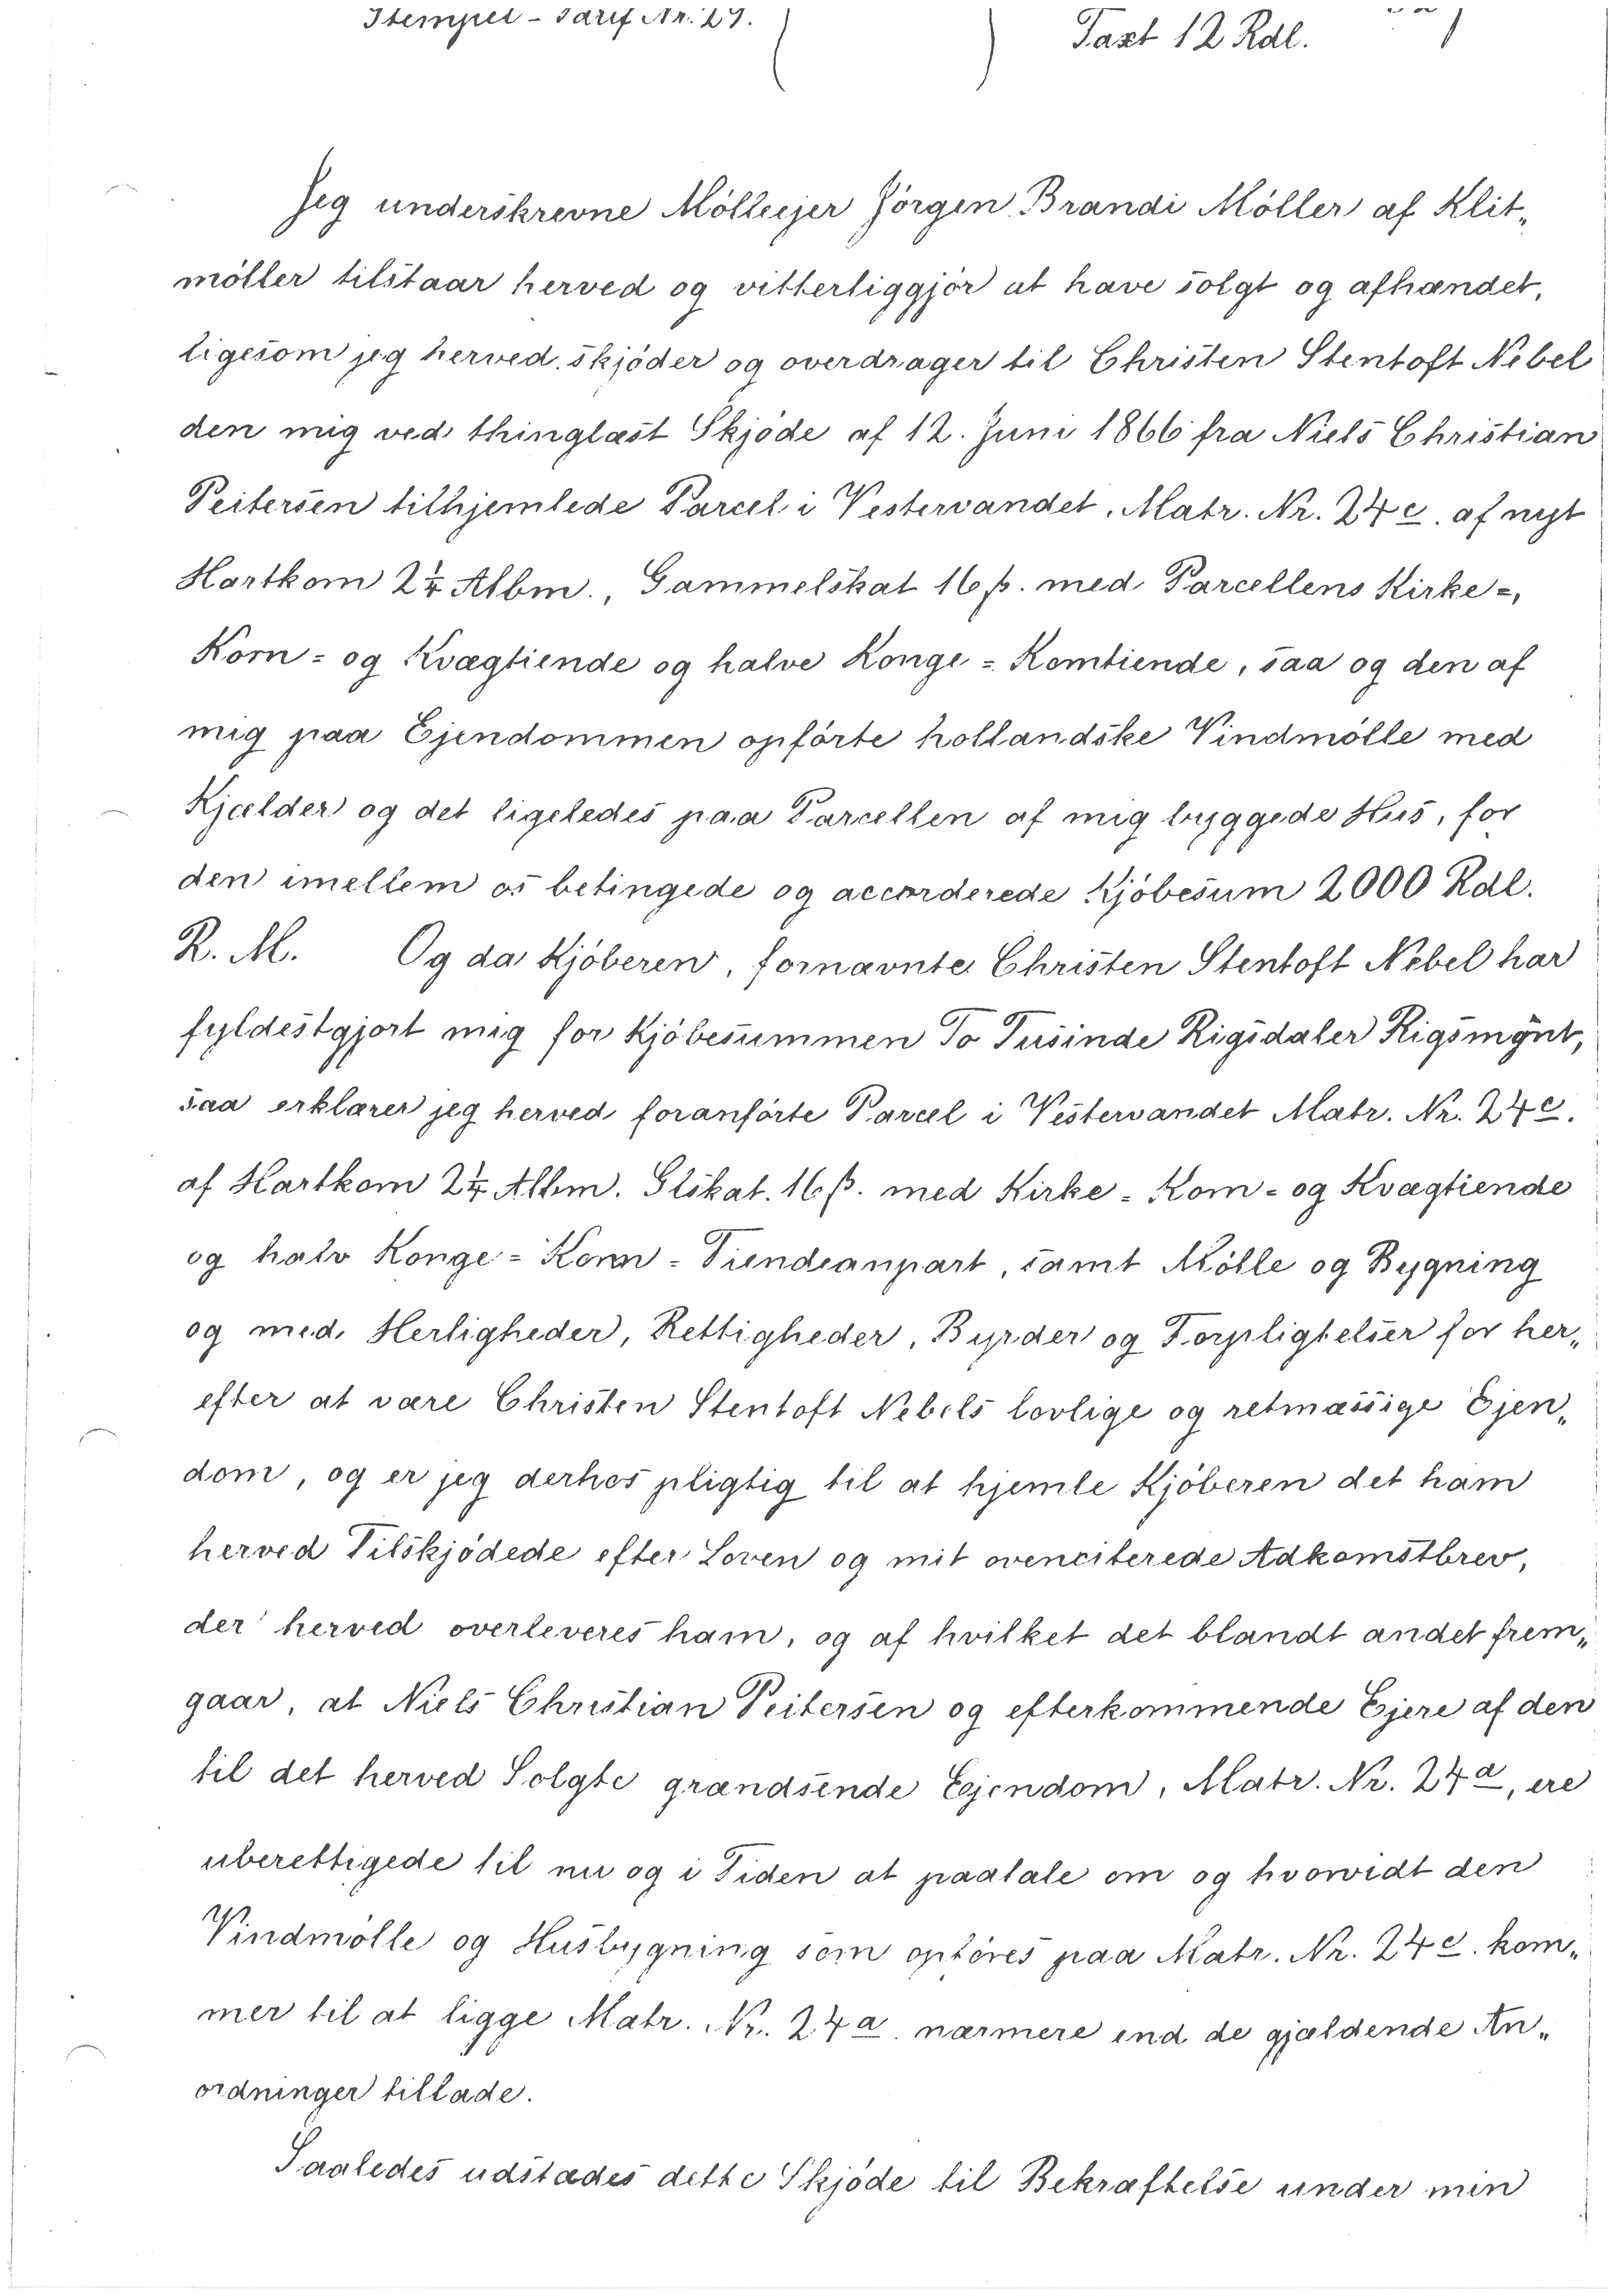 Stempel - Tarif Nr. 29.
Taxt 12 Rdl.
Jeg underskrevne Mölleejer Jörgen Brandi Möller af Klit„
möller tilstaar herved og vitterliggjör at have solgt og afhændet,
ligesom jeg herved skjöder og overdrager til Christen Stentoft Nebel
den mig ved thinglæst Skjöde af 12. Juni 1866 fra Niels Christian
Peitersen tilhjemlede Parcel i Vestervandet, Matr. Nr. 24 c. af nyt
Hartkorn 2¼ Albm., Gammelskat 16 ß. med Parcellens Kirke=,
Korn= og Kvægtiende og halve Konge= Korntiende, saa og den af
mig paa Ejendommen opförte hollandske Vindmölle med
Kjælder og det ligeledes paa Parcellen af mig byggede Hus, for
den imellem os betingede og accorderede Kjöbesum 2000 Rdl.
R. M. Og da Kjöberen, fornævnte Christen Stentoft Nebel har
fyldestgjort mig for Kjöbesummen To Tusinde Rigsdaler Rigsmynt,
saa erklærer jeg herved foranförte Parcel i Vestervandet Matr. Nr. 24 c.
af Hartkorn 2¼ Albm. Glskat. 16 ß. med Kirke= Korn= og Kvægtiende
og halv Konge= Korn= Tiendeanpart, samt Mölle og Bygning
og med Herligheder, Rettigheder, Byrder og Forpligtelser for her„
efter at være Christen Stentoft Nebels lovlige og retmæssige Ejen„
dom, og er jeg derhos pligtig til at hjemle Kjöberen det ham
herved Tilskjödede efter Loven og mit ovenciterede Adkomstbrev,
der herved overleveres ham, og af hvilket det blandt andet frem„
gaar, at Niels Christian Peitersen og efterkommende Ejere af den
til det herved Solgte grændsende Ejendom, Matr. Nr. 24 a, ere
uberettigede til nu og i Tiden at paatale om og hvorvidt den
Vindmölle og Husbygning som opföres paa Matr. Nr. 24 c. kom„
mer til at ligge Matr. Nr. 24 a. nærmere end de gjældende An„
ordninger tillade.
Saaledes udstædes dette Skjöde til Bekræftelse under min